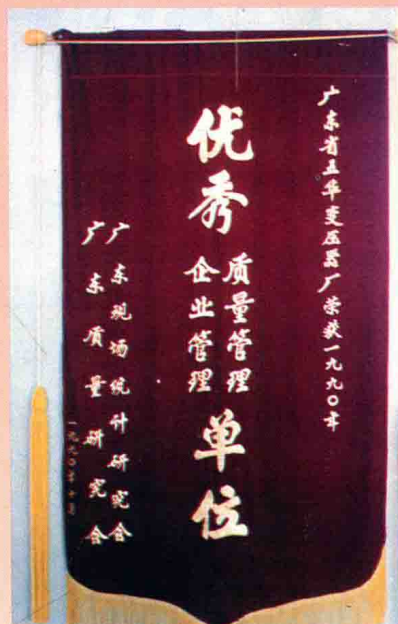 广东省五华变压器厂荣获一九九〇年
优秀
质量管理
企业管理
单位
广东现场统计研究会
广东质量研究会
一九九〇年十月